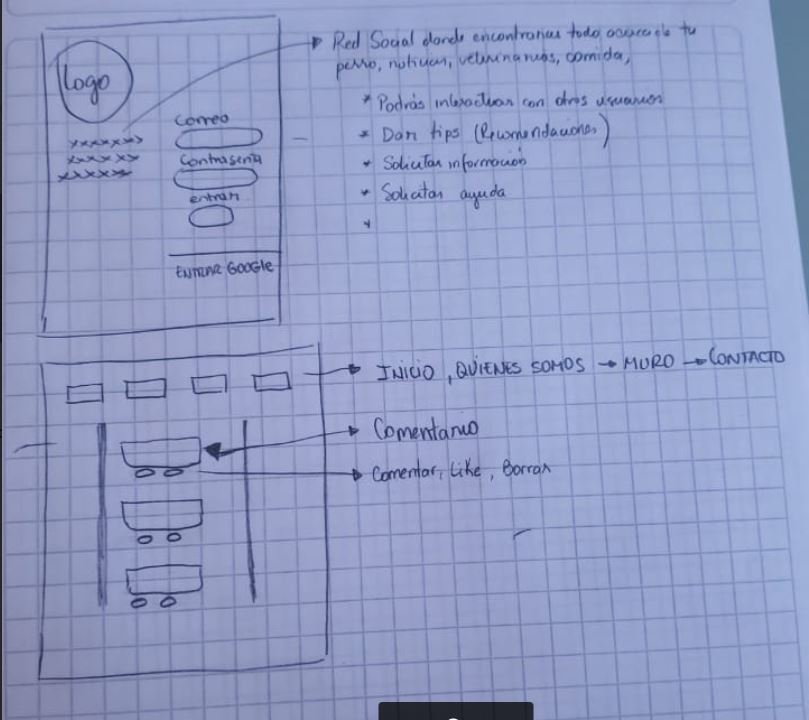 Logo
xxxxxxx
xxxxxx
xxxxx
Correo
Contraseña
entrar
ENTRAR GOOGLE
Red Social donde encontraras todo acerca de tu
perro, noticias, veterinarias, comida,
* Podrás interactuar con otros usuarios
* Dar tips (Recomendaciones)
* Solicitar información
* Solicitar ayuda
*
INICIO, QUIENES SOMOS → MURO → CONTACTO
Comentario
Comentar, Like, Borrar